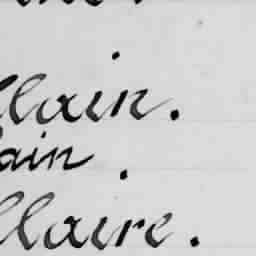 llain.
ain.
llaire.